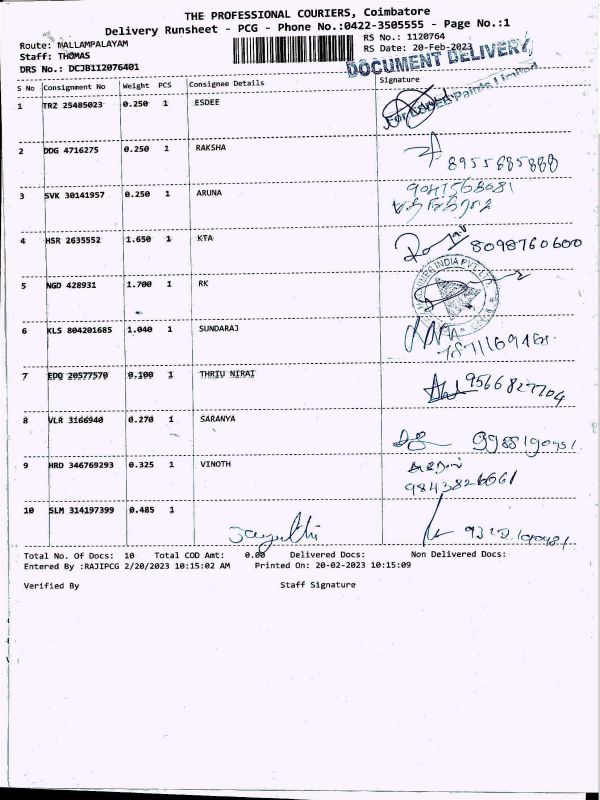 THE PROFESSIONAL COURIERS, Coimbatore
Delivery Runsheet - PCG - Phone No.:0422-3505555 - Page No.:1
Route: NALLAMPALAYAM
RS No.: 1120764
Staff: THOMAS
RS Date: 20-Feb-2023
DRS No.: DCJB112076401
DOCUMENT DELIVERY
S No Consignment No Weight PCS Consignee Details Signature
1 TRZ 25485023 0.250 1 ESDEE
Paints Limited
2 DDG 4716275 0.250 1 RAKSHA
8955685888
3 SVK 30141957 0.250 1 ARUNA
4 HSR 2635552 1.650 1 KTA 8098760600
5 NGD 428931 1.700 1 RK
INDIA PVT LTD
6 KLS 804201685 1.040 1 SUNDARAJ
7 EDQ 20577570 0.100 1 THRIU NIRAI 9566827704
8 VLR 3166940 0.270 1 SARANYA
9 HRD 346769293 0.325 1 VINOTH
9843826661
10 SLM 314197399 0.485 1
Total No. Of Docs: 10 Total COD Amt: 0.00 Delivered Docs: Non Delivered Docs:
Entered By :RAJIPCG 2/20/2023 10:15:02 AM Printed On: 20-02-2023 10:15:09
Verified By Staff Signature